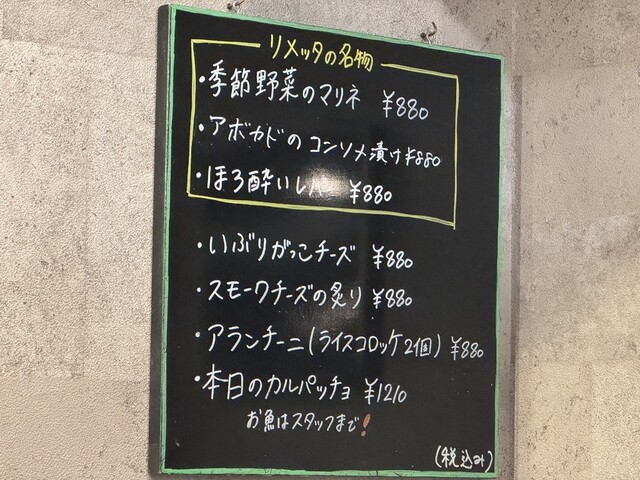 リメッタの名物
・季節野菜のマリネ ¥880
・アボカドのコンソメ漬け ¥880
・ほろ酔いレバー ¥880
・いぶりがっこチーズ ¥880
・スモークチーズの炙り ¥880
・アランチーニ(ライスコロッケ2個) ¥880
・本日のカルパッチョ ¥1210
お魚はスタッフまで!
(税込み)